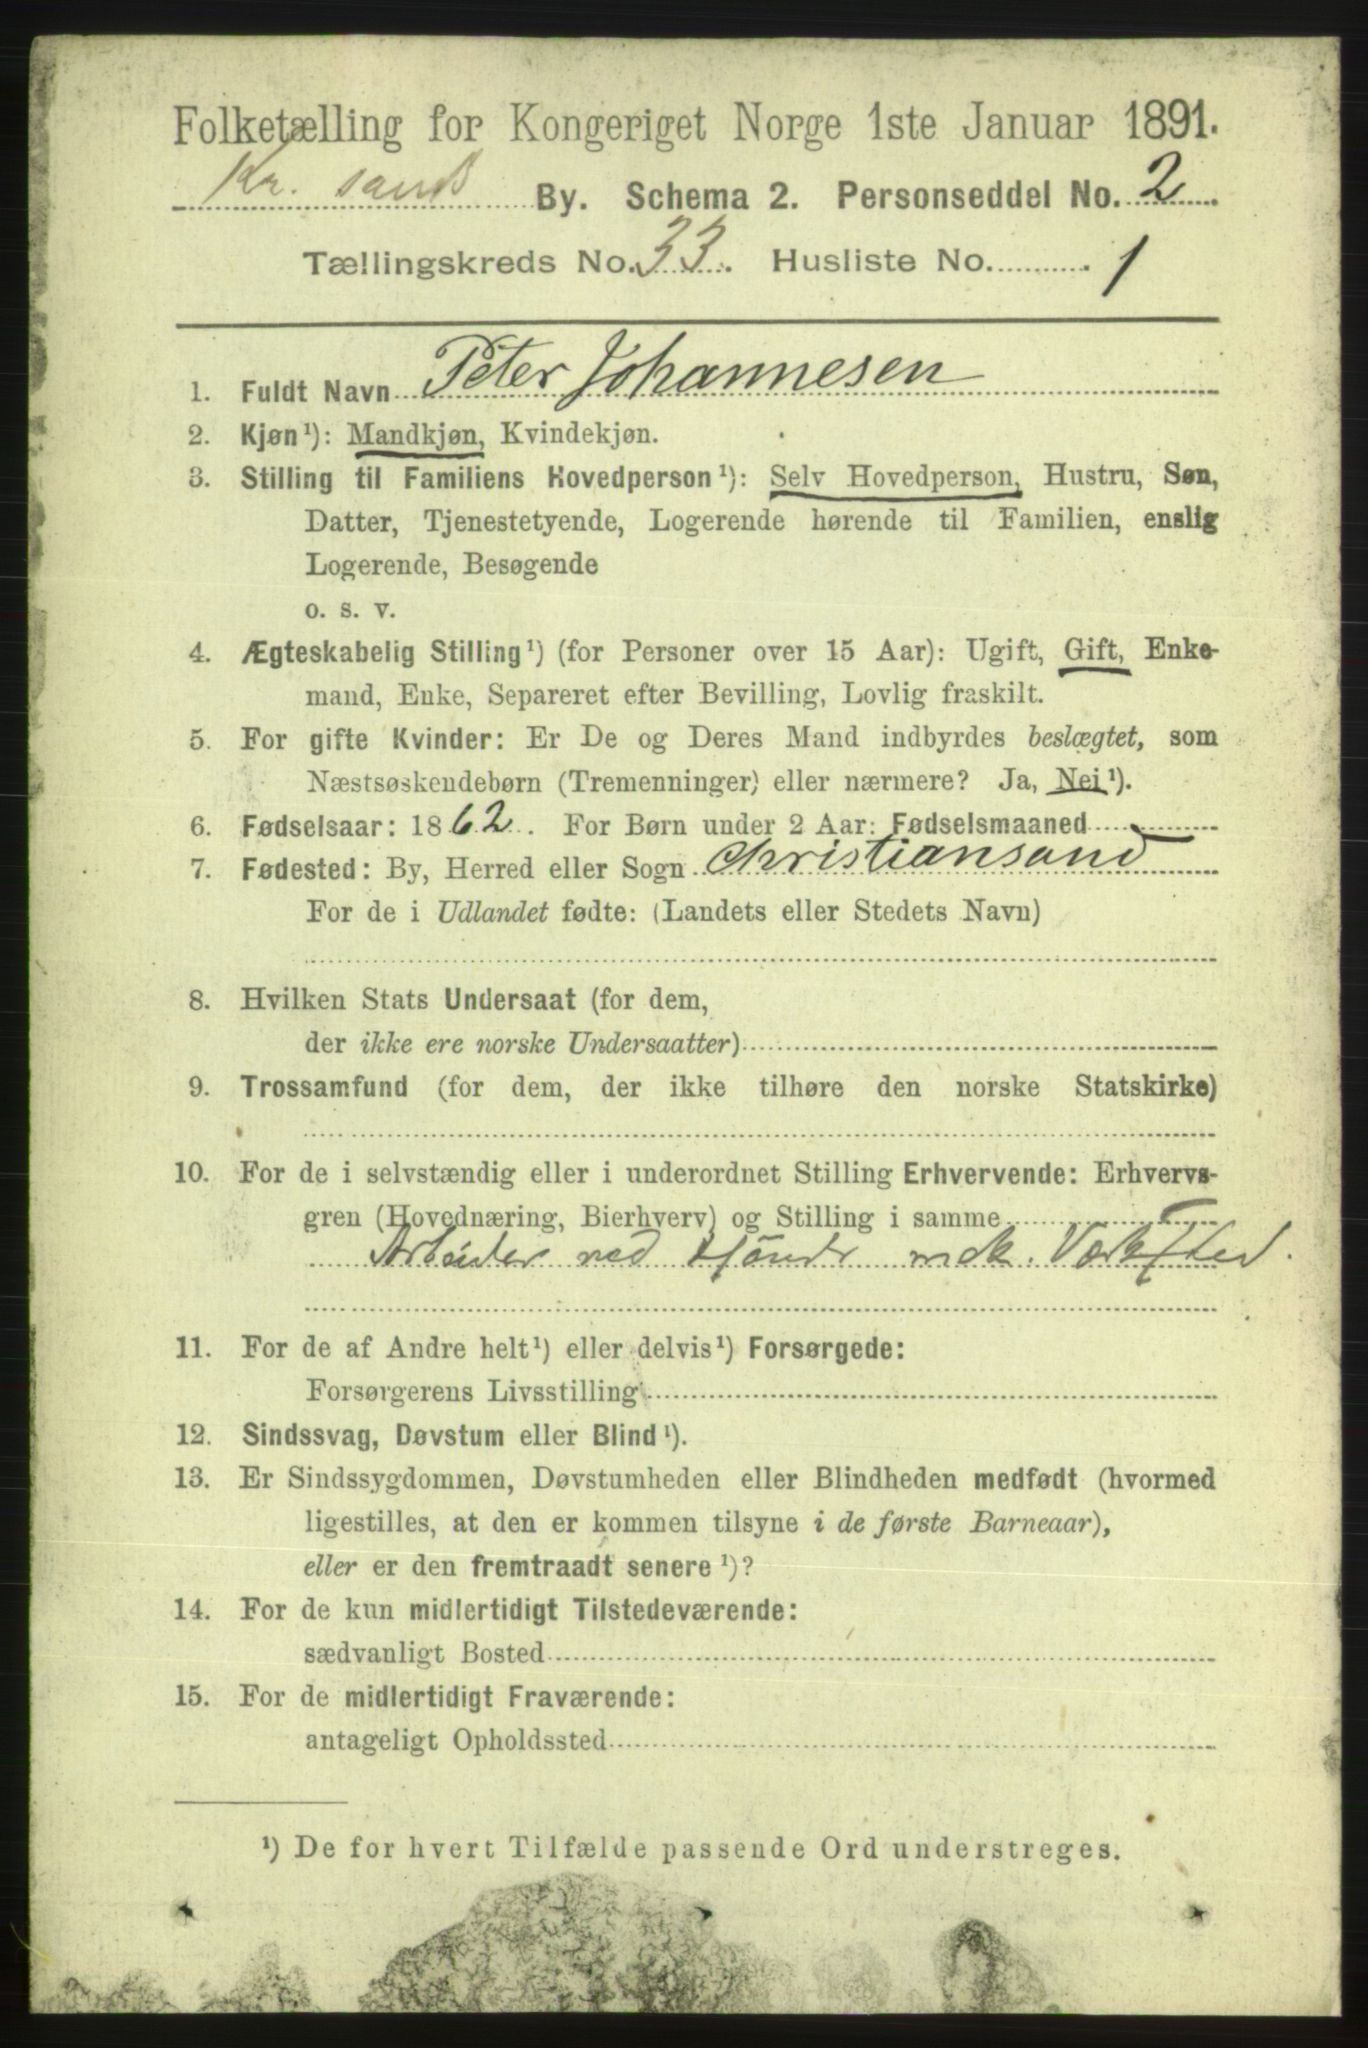 Folketælling for Kongeriget Norge 1ste Januar 1891.
Kr. sands By. Schema 2. Personseddel No. 2.
Tællingskreds No. 33. Husliste No. 1
1. Fuldt Navn Peter Johannesen
2. Kjøn¹): Mandkjøn, Kvindekjøn.
3. Stilling til Familiens Hovedperson¹): Selv Hovedperson, Hustru, Søn,
Datter, Tjenestetyende, Logerende hørende til Familien, enslig
Logerende, Besøgende
o. s. v.
4. Ægteskabelig Stilling¹) (for Personer over 15 Aar): Ugift, Gift, Enke-
mand, Enke, Separeret efter Bevilling, Lovlig fraskilt.
5. For gifte Kvinder: Er De og Deres Mand indbyrdes beslægtet, som
Næstsøskendebørn (Tremenninger) eller nærmere? Ja, Nei¹).
6. Fødselsaar: 1862. For Børn under 2 Aar: Fødselsmaaned
7. Fødested: By, Herred eller Sogn Christiansand
For de i Udlandet fødte: (Landets eller Stedets Navn)
8. Hvilken Stats Undersaat (for dem,
der ikke ere norske Undersaatter)
9. Trossamfund (for dem, der ikke tilhøre den norske Statskirke)
10. For de i selvstændig eller i underordnet Stilling Erhvervende: Erhvervs-
gren (Hovednæring, Bierhverv) og Stilling i samme
Arbeider ved mek. Værksted.
11. For de af Andre helt¹) eller delvis¹) Forsørgede:
Forsørgerens Livsstilling
12. Sindssvag, Døvstum eller Blind¹).
13. Er Sindssygdommen, Døvstumheden eller Blindheden medfødt (hvormed
ligestilles, at den er kommen tilsyne i de første Barneaar),
eller er den fremtraadt senere¹)?
14. For de kun midlertidigt Tilstedeværende:
sædvanligt Bosted
15. For de midlertidigt Fraværende:
antageligt Opholdssted
¹) De for hvert Tilfælde passende Ord understreges.